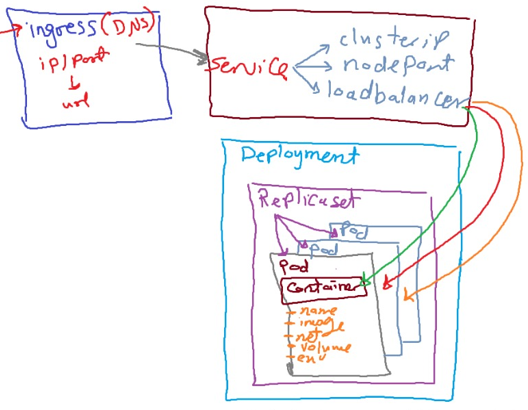 ingress (DNS)
ip/port
url
service
clusterip
nodeport
loadbalancer
Deployment
Replicaset
pod
pod
pod
Container
name
image
net
volume
env